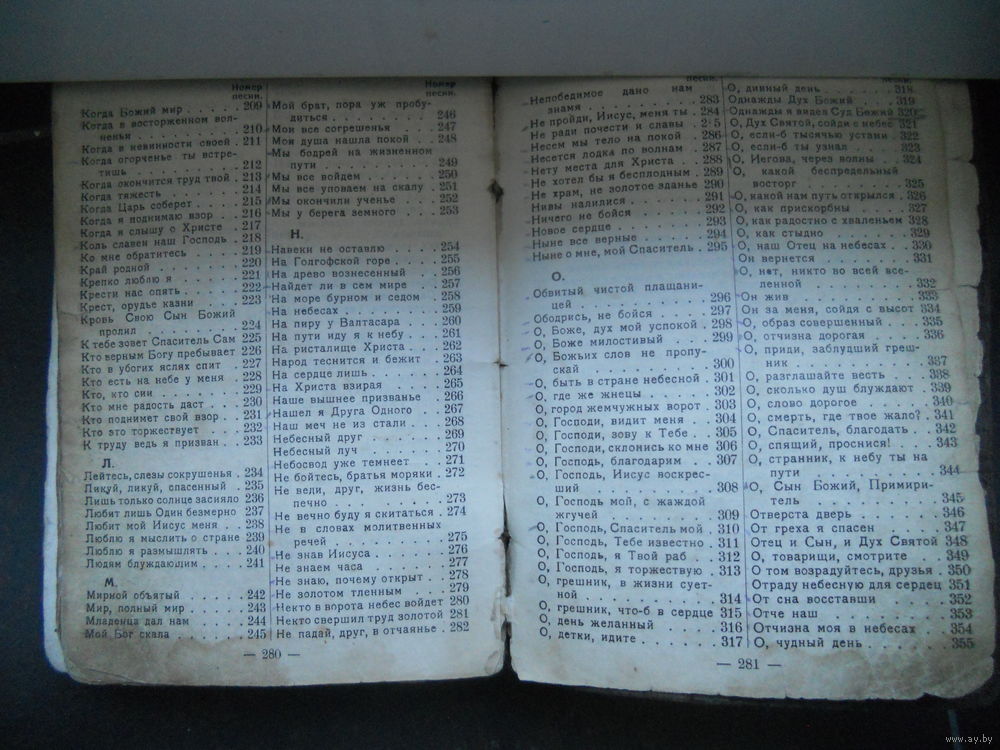 Номер
песни.
Когда Божий мир . . . . . 209
Когда в восторженном вол-
ненья . . . . . . . . 210
Когда в невинности своей . 211
Когда огорченье ты встре-
тишь . . . . . . . . 212
Когда окончится труд твой . 213
Когда тяжесть . . . . . . 214
Когда Царь соберет . . . . 215
Когда я поднимаю взор . . 216
Когда я слышу о Христе . 217
Коль славен наш Господь . 218
Ко мне обратитесь . . . . 219
Край родной . . . . . . . 220
Крепко люблю я . . . . . 221
Крести нас опять . . . . . 222
Крест, орудье казни . . . . 223
Кровь Свою Сын Божий
пролил . . . . . . . . 224
К тебе зовет Спаситель Сам 225
Кто верным Богу пребывает 226
Кто в убогих яслях спит . 227
Кто есть на небе у меня . 228
Кто, кто сии . . . . . . . 229
Кто мне радость даст . . . 230
Кто поднимет свой взор . . 231
Кто это торжествует . . . 232
К труду ведь я призван . . 233
Л.
Лейтесь, слезы сокрушенья . 234
Ликуй, ликуй, спасенный . 235
Лишь только солнце засияло 236
Любит лишь Один безмерно 237
Любит мой Иисус меня . . 238
Люблю я мыслить о стране 239
Люблю я размышлять . . . 240
Людям блуждающим . . . . 241
М.
Мирной объятый . . . . . 242
Мир, полный мир . . . . . 243
Младенца дал нам . . . . 244
Мой Бог скала . . . . . . 245
Номер
песни.
Мой брат, пора уж пробу-
диться . . . . . . . . 246
Мои все согрешенья . . . 247
Моя душа нашла покой . . 248
Мы бодрей на жизненном
пути . . . . . . . . . 249
Мы все войдем . . . . . . 250
Мы все уповаем на скалу . 251
Мы окончили ученье . . . 252
Мы у берега земного . . . 253
Н.
Навеки не оставлю . . . . 254
На Голгофской горе . . . . 255
На древо вознесенный . . . 256
Найдет ли в сем мире . . 257
На море бурном и седом . 258
На небесах . . . . . . . . 259
На пиру у Валтасара . . . 260
На пути иду я к небу . . . 261
На ристалище Христа . . . 262
Народ теснится и бежит . 263
На сердце лишь . . . . . 264
На Христа взирая . . . . 265
Наше вышнее призванье . 266
Нашел я Друга Одного . . 267
Наш меч не из стали . . . 268
Небесный друг . . . . . . 269
Небесный луч . . . . . . 270
Небосвод уже темнеет . . 271
Не бойтесь, братья моряки . 272
Не вели, друг, жизнь бес-
печно . . . . . . . . 273
Не вечно буду я скитаться . 274
Не в словах молитвенных
речей . . . . . . . . 275
Не знав Иисуса . . . . . 276
Не знаем часа . . . . . . 277
Не знаю, почему открыт . . 278
Не золотом тленным . . . 279
Некто в ворота небес войдет 280
Некто свершил труд золотой 281
Не падай, друг, в отчаянье . 282
— 280 —
песни.
Непобедимое дано нам
знамя . . . . . . . . 283
Не пройди, Иисус, меня ты . 284
Не ради почести и славы . 2 5
Несем мы тело на покой . 286
Несется лодка по волнам . 287
Нету места для Христа . . 288
Не хотел бы я бесплодным . 289
Не храм, не золотое зданье 290
Нивы налилися . . . . . . 291
Ничего не бойся . . . . . 292
Новое сердце . . . . . . . 293
Ныне все верные . . . . . 294
Ныне о мне, мой Спаситель . 295
О.
Обвитый чистой плащани-
цей . . . . . . . . . 296
Ободрись, не бойся . . . . 297
О, Боже, дух мой успокой . 298
О, Боже милостивый . . . 299
О, Божьих слов не пропу-
скай . . . . . . . . . 300
О, быть в стране небесной . 301
О, где же жнецы . . . . . 302
О, город жемчужных ворот . 303
О, Господи, видит меня . . 304
О, Господи, зову к Тебе . . 305
О, Господи, склонись ко мне 306
О, Господь, благодарим . . 307
О, Господь, Иисус воскрес-
ший . . . . . . . . . 308
О, Господь мой, с жаждой
жгучей . . . . . . . . 309
О, Господь, Спаситель мой . 310
О, Господь, Тебе известно . 311
О, Господь, я Твой раб . . 312
О, Господь, я торжествую . 313
О, грешник, в жизни сует-
ной . . . . . . . . . 314
О, грешник, что-б в сердце 315
О, день желанный . . . . 316
О, детки, идите . . . . . . 317
песни.
О, дивный день . . . . . . 318
Однажды Дух Божий . . . 319
Однажды я видел Суд Божий 320
О, Дух Святой, сойди с небес 321
О, если-б тысячью устами . 322
О, если-б ты узнал . . . . 323
О, Иегова, через волны . . 324
О, какой беспредельный
восторг . . . . . . . . 325
О, какой нам путь открылся . 326
О, как прискорбны . . . . 327
О, как радостно с хваленьем 328
О, как стыдно . . . . . . 329
О, наш Отец на небесах . . 330
Он вернется . . . . . . . 331
О, нет, никто во всей все-
ленной . . . . . . . . 332
Он жив . . . . . . . . . 333
Он за меня, сойдя с высот 334
О, образ совершенный . . . 335
О, отчизна дорогая . . . . 336
О, приди, заблудший греш-
ник . . . . . . . . . 337
О, разглашайте весть . . . 338
О, сколько душ блуждают . 339
О, слово дорогое . . . . . 340
О, смерть, где твое жало? . 341
О, Спаситель, благодать . . 342
О, спящий, проснися! . . . 343
О, странник, к небу ты на
пути . . . . . . . . . 344
О, Сын Божий, Примири-
тель . . . . . . . . . 345
Отверста дверь . . . . . . 346
От греха я спасен . . . . 347
Отец и Сын, и Дух Святой 348
О, товарищи, смотрите . . 349
О том возрадуйтесь, друзья . 350
Отраду небесную для сердец 351
От сна восставши . . . . . 352
Отче наш . . . . . . . . 353
Отчизна моя в небесах . . 354
О, чудный день . . . . . . 355
— 281 —
www.ay.by